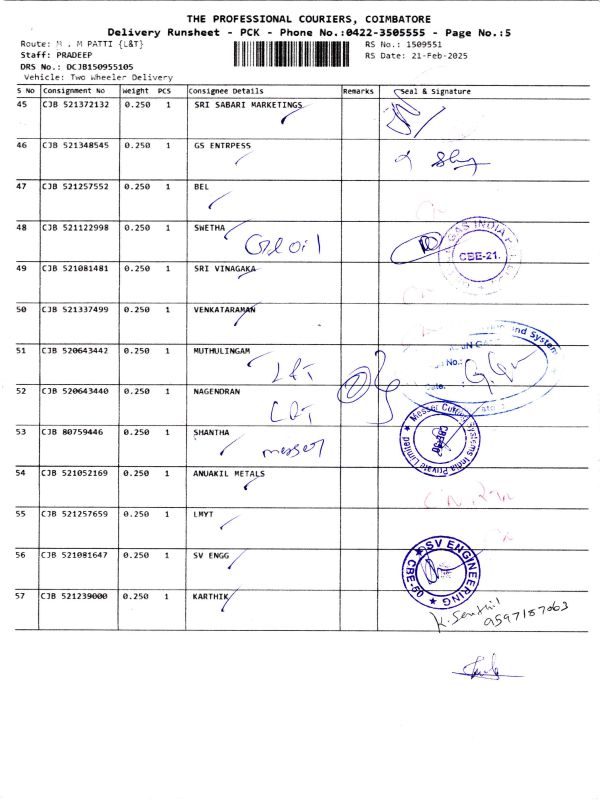 THE PROFESSIONAL COURIERS, COIMBATORE
Delivery Runsheet - PCK - Phone No.:0422-3505555 - Page No.:5
Route: M . M PATTI {L&T} RS No.: 1509551
Staff: PRADEEP RS Date: 21-Feb-2025
DRS No.: DCJB150955105
Vehicle: Two Wheeler Delivery
S No Consignment No Weight PCS Consignee Details Remarks Seal & Signature
45 CJB 521372132 0.250 1 SRI SABARI MARKETINGS
46 CJB 521348545 0.250 1 GS ENTRPESS
47 CJB 521257552 0.250 1 BEL
48 CJB 521122998 0.250 1 SWETHA
oil
GAS INDIA
CBE-21.
49 CJB 521081481 0.250 1 SRI VINAGAKA
50 CJB 521337499 0.250 1 VENKATARAMAN
51 CJB 520643442 0.250 1 MUTHULINGAM
L&T
and Systems
No.:
Date.
52 CJB 520643440 0.250 1 NAGENDRAN
L&T
53 CJB 80759446 0.250 1 SHANTHA
messer
Messer Cutting Systems India Private Limited
CBE-50
54 CJB 521052169 0.250 1 ANUAKIL METALS
55 CJB 521257659 0.250 1 LMYT
56 CJB 521081647 0.250 1 SV ENGG
SV ENGINEERING
CBE-50
57 CJB 521239000 0.250 1 KARTHIK
K. Senthil
9597187063